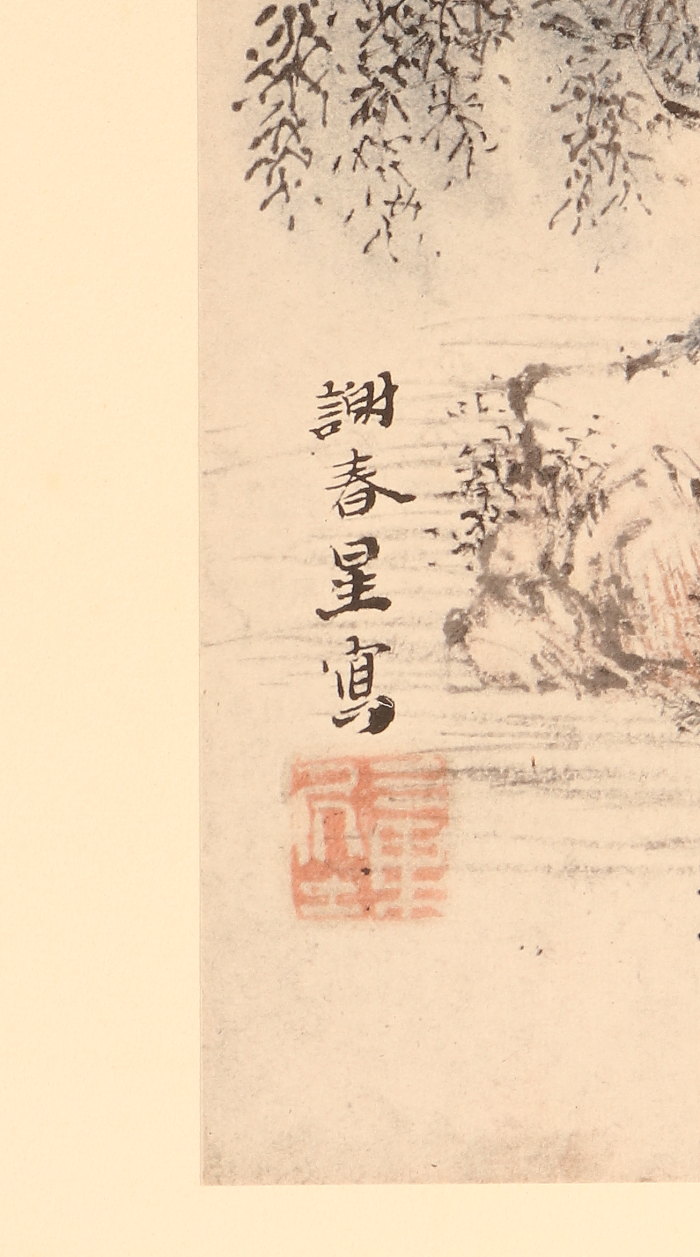 謝春星寫